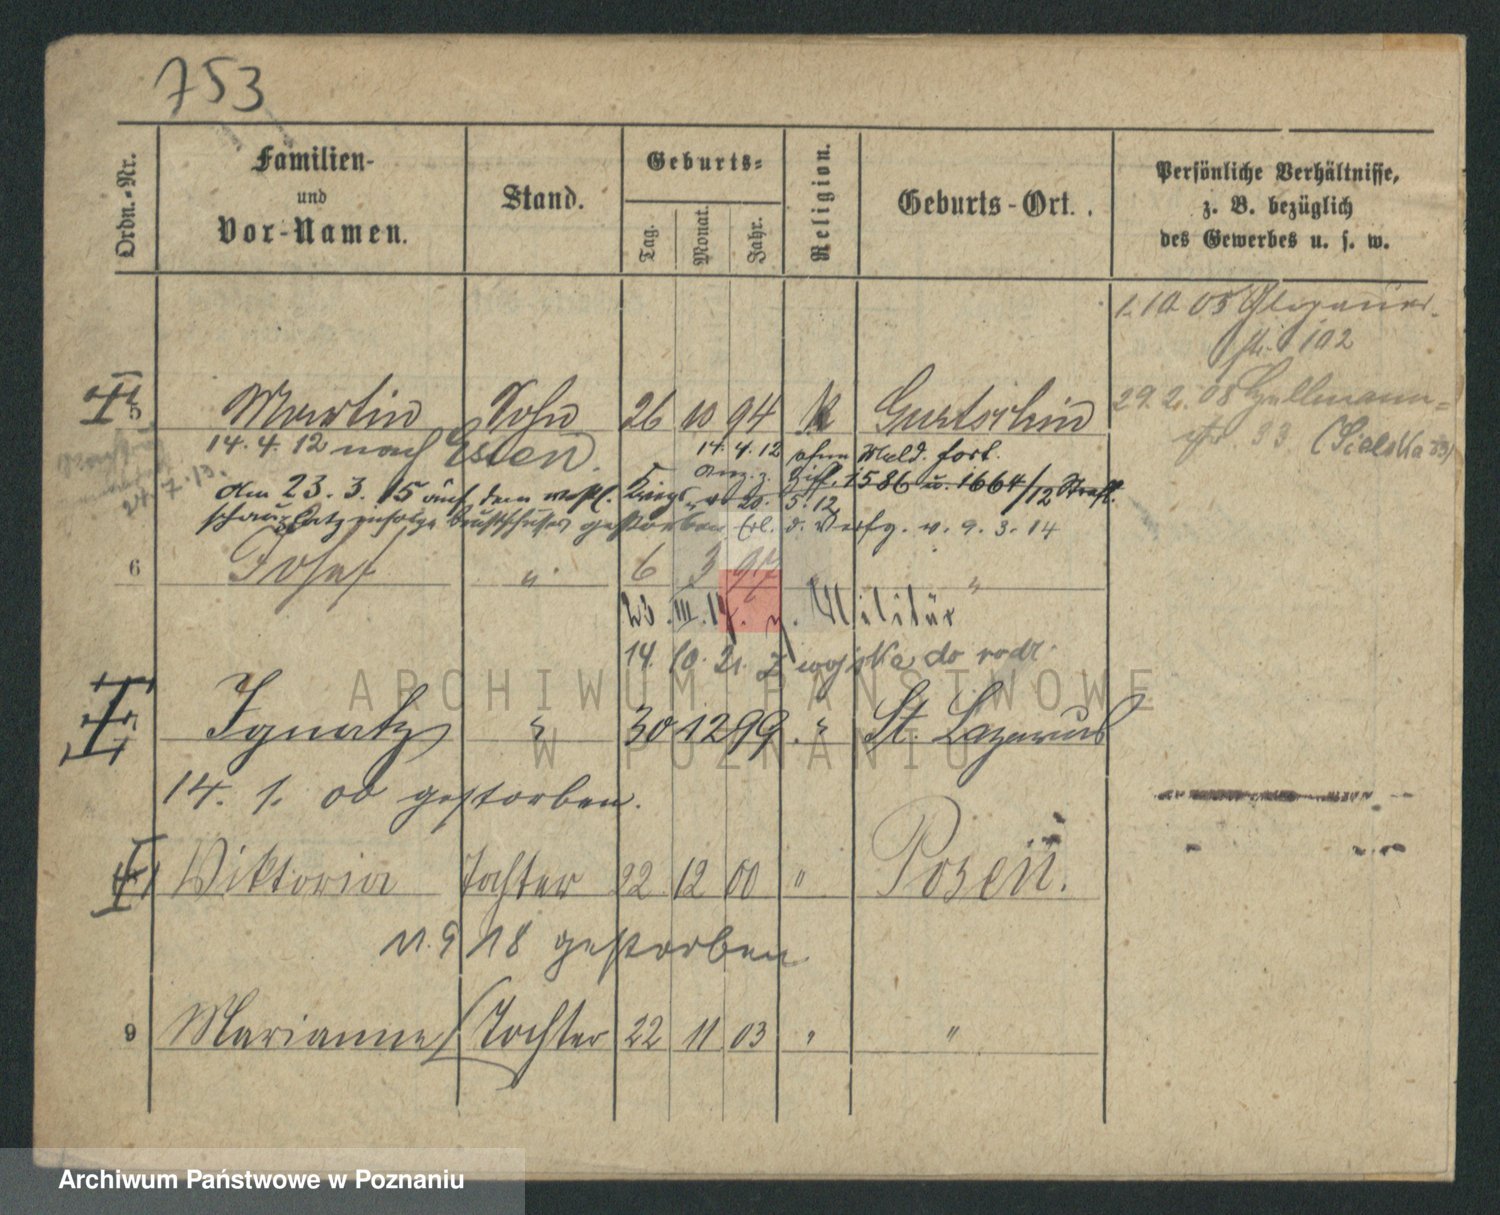 753
Ordn.-Nr.
Familien-
und
Vor-Namen.
Stand.
Geburts-
Tag.
Monat.
Jahr.
Religion.
Geburts-Ort.
Persönliche Verhältnisse,
z. B. bezüglich
des Gewerbes u. s. w.
1.10.05 Glogauer-
str. 102
5 Martin Sohn 26 10 94 K Gurtschin
29.2.08 Hellmann-
str. 33 (Sielska 33)
14.4.12 nach Essen.
14.4.12 ohne Meld. fort.
Am 23.3.15 auf dem westl. Kriegs-
Anz. z. Ziff. 1586 u. 1664/12 Straft.
v. 20.5.12
schauplatz infolge Brustschusses gestorben
Erl. d. Verfg. v. 9.3.14
6 Josef " 6 3 97 "
III.17. z. Militär
14.10.21. z wojska do rodz.
Ignatz " 30 12 99 " St. Lazarus
14. 1. 00 gestorben.
Viktoria Tochter 22 12 00 " Posen.
11.9 18 gestorben
9 Marianne Tochter 22 11 03 " "
ARCHIWUM PAŃSTWOWE
W POZNANIU
Archiwum Państwowe w Poznaniu